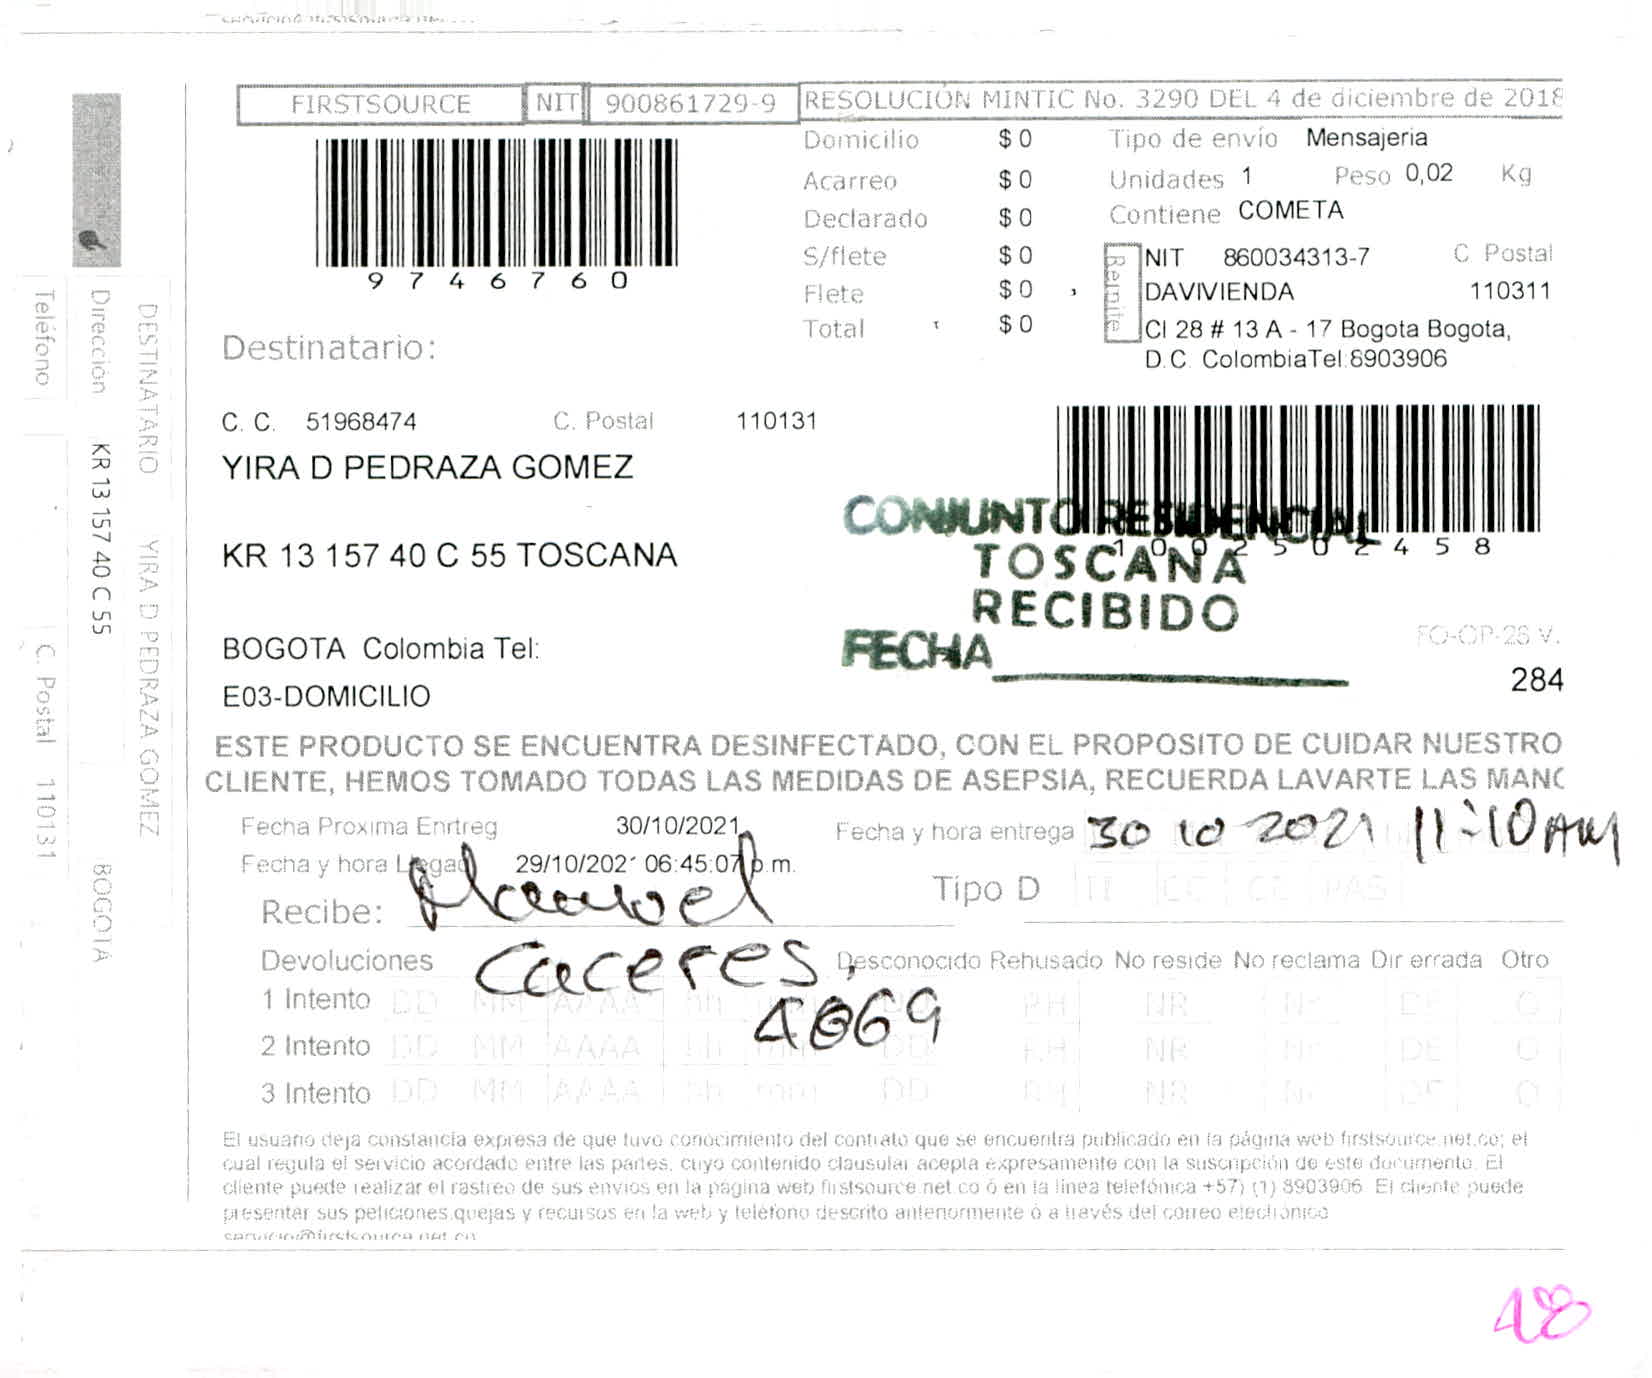 FIRSTSOURCE NIT 900861729-9 RESOLUCIÓN MINTIC No. 3290 DEL 4 de diciembre de 2018
Domicilio $ 0 Tipo de envío Mensajeria
Acarreo $ 0 Unidades 1 Peso 0,02 Kg
Declarado $ 0 Contiene COMETA
S/flete $ 0 Remite NIT 860034313-7 C. Postal
9746760
Flete $ 0 DAVIVIENDA 110311
Total $ 0 Cl 28 # 13 A - 17 Bogota Bogota,
D.C. ColombiaTel:8903906
Destinatario:
C. C. 51968474 C. Postal 110131
YIRA D PEDRAZA GOMEZ
CONJUNTO RESIDENCIAL
1002502458
KR 13 157 40 C 55 TOSCANA
TOSCANA
RECIBIDO
FECHA
FO-OP-26 V.
BOGOTA Colombia Tel:
284
E03-DOMICILIO
ESTE PRODUCTO SE ENCUENTRA DESINFECTADO, CON EL PROPOSITO DE CUIDAR NUESTRO
CLIENTE, HEMOS TOMADO TODAS LAS MEDIDAS DE ASEPSIA, RECUERDA LAVARTE LAS MANO
Fecha Proxima Enrtreg 30/10/2021 Fecha y hora entrega 30 10 2021 11:10 AM
Fecha y hora Llegad 29/10/2021 06:45:07 p.m.
Tipo D TI CC CE PAS
Recibe: Manuel
Caceres,
4869
Devoluciones Desconocido Rehusado No reside No reclama Dir errada Otro
1 Intento DD MM AAAA hh mm DD RH NR Nr DE O
2 Intento DD MM AAAA hh mm DD RH NR Nr DE O
3 Intento DD MM AAAA hh mm DD RH NR Nr DE O
El usuario deja constancia expresa de que tuvo conocimiento del contrato que se encuentra publicado en la página web firstsource.net.co; el
cual regula el servicio acordado entre las partes, cuyo contenido clausular acepta expresamente con la suscripción de este documento. El
cliente puede realizar el rastreo de sus envios en la página web firstsource.net.co ó en la línea telefónica +57) (1) 8903906 El cliente puede
presentar sus peticiones,quejas y recursos en la web y teléfono descrito anteriormente ó a través del correo electrónico
servicio@firstsource.net.co
DESTINATARIO YIRA D PEDRAZA GOMEZ
Dirección KR 13 157 40 C 55 BOGOTA
Teléfono C. Postal 110131
48